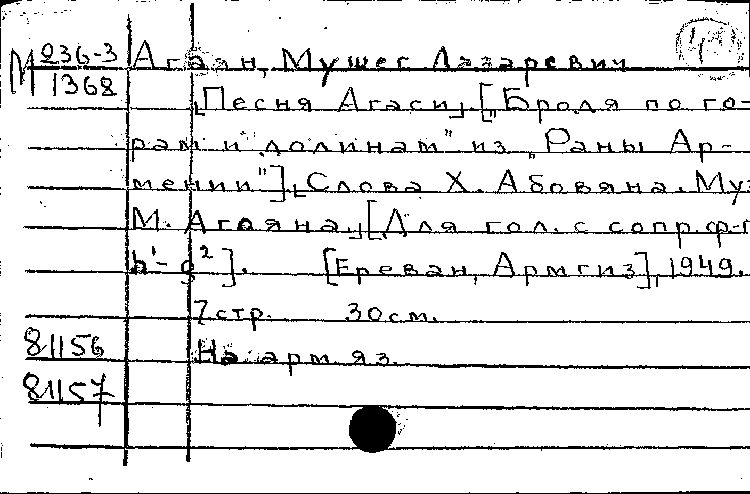 М 236-3
1368
Агаян, Мушег Лазаревич
[Песня Агаси]. ["Бродя по го-
рам и долинам" из "Раны Ар-
мении"]. [Слова Х. Абовяна. Муз
М. Агаяна.] [Для гол. с сопр. ф-п
h¹-g²]. [Ереван, Армгиз], 1949.
7 стр. 30 см.
81156 На арм яз.
81157